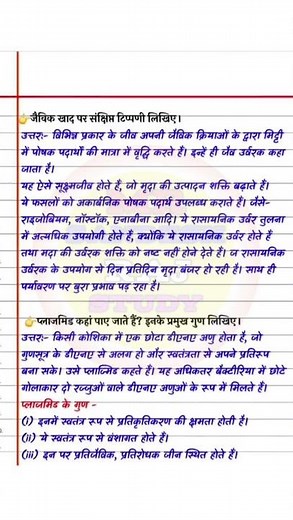 👉जैविक खाद पर संक्षिप्त टिप्पणी लिखिए।
उत्तर:- विभिन्न प्रकार के जीव अपनी जैविक क्रियाओं के द्वारा मिट्टी
में पोषक पदार्थों की मात्रा में वृद्धि करते हैं। इन्हें ही जैव उर्वरक कहा
जाता है।
यह ऐसे सूक्ष्मजीव होते हैं, जो मृदा की उत्पादन शक्ति बढ़ाते हैं।
ये फसलों को अकार्बनिक पोषक पदार्थ उपलब्ध कराते हैं। जैसे-
राइजोबियम, नॉस्टॉक, एनाबीना आदि। ये रासायनिक उर्वर तुलना
में अत्यधिक उपयोगी होते हैं, क्योंकि ये रासायनिक उर्वर होते हैं
तथा मदा की उर्वरक शक्ति को नष्ट नहीं होने देते हैं। ज रासायनिक
उर्वरक के उपयोग से दिन प्रतिदिन मृदा बंजर हो रही है। साथ ही
पर्यावरण पर बुरा प्रभाव पड़ रहा है।
STUDY
👉प्लाजमिड कहां पाए जाते हैं? इनके प्रमुख गुण लिखिए।
उत्तर:- किसी कोशिका में एक छोटा डीएनए अणु होता है, जो
गुणसूत्र के डीएनए से अलग हो और स्वतंत्रता से अपने प्रतिरूप
बना सके। उसे प्लाज्मिड कहते हैं। यह अधिकतर बैक्टीरिया में छोटे
गोलाकार दो रज्जुओं वाले डीएनए अणुओं के रूप में मिलते हैं।
प्लाजमिड के गुण -
(i) इनमें स्वतंत्र रूप से प्रतिकृतिकरण की क्षमता होती है।
(ii) ये स्वतंत्र रूप से वंशागत होते हैं।
(iii) इन पर प्रतिजैविक, प्रतिरोधक जीन स्थित होते हैं।